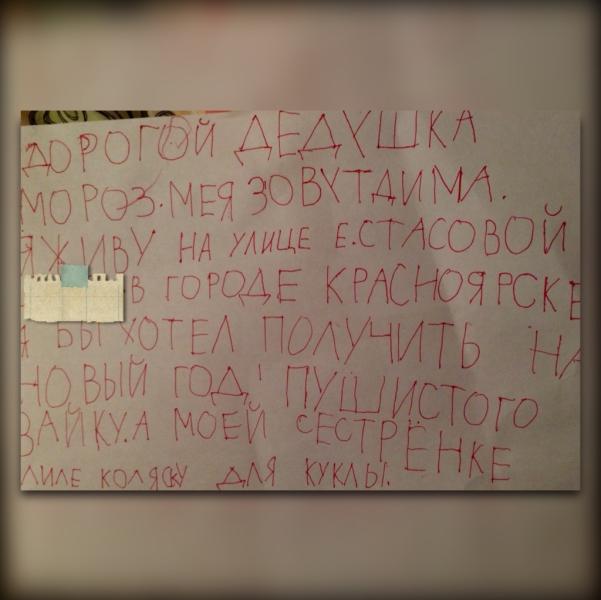 ДОРОГОЙ ДЕДУШКА
МОРОЗ. МЕЯ ЗОВУТ ДИМА.
Я ЖИВУ НА УЛИЦЕ Е.СТАСОВОЙ
В ГОРОДЕ КРАСНОЯРСКЕ
Я БЫ ХОТЕЛ ПОЛУЧИТЬ НА
НОВЫЙ ГОД! ПУШИСТОГО
ЗАЙКУ.А МОЕЙ СЕСТРЁНКЕ
ЛИЛЕ КОЛЯСКУ ДЛЯ КУКЛЫ.